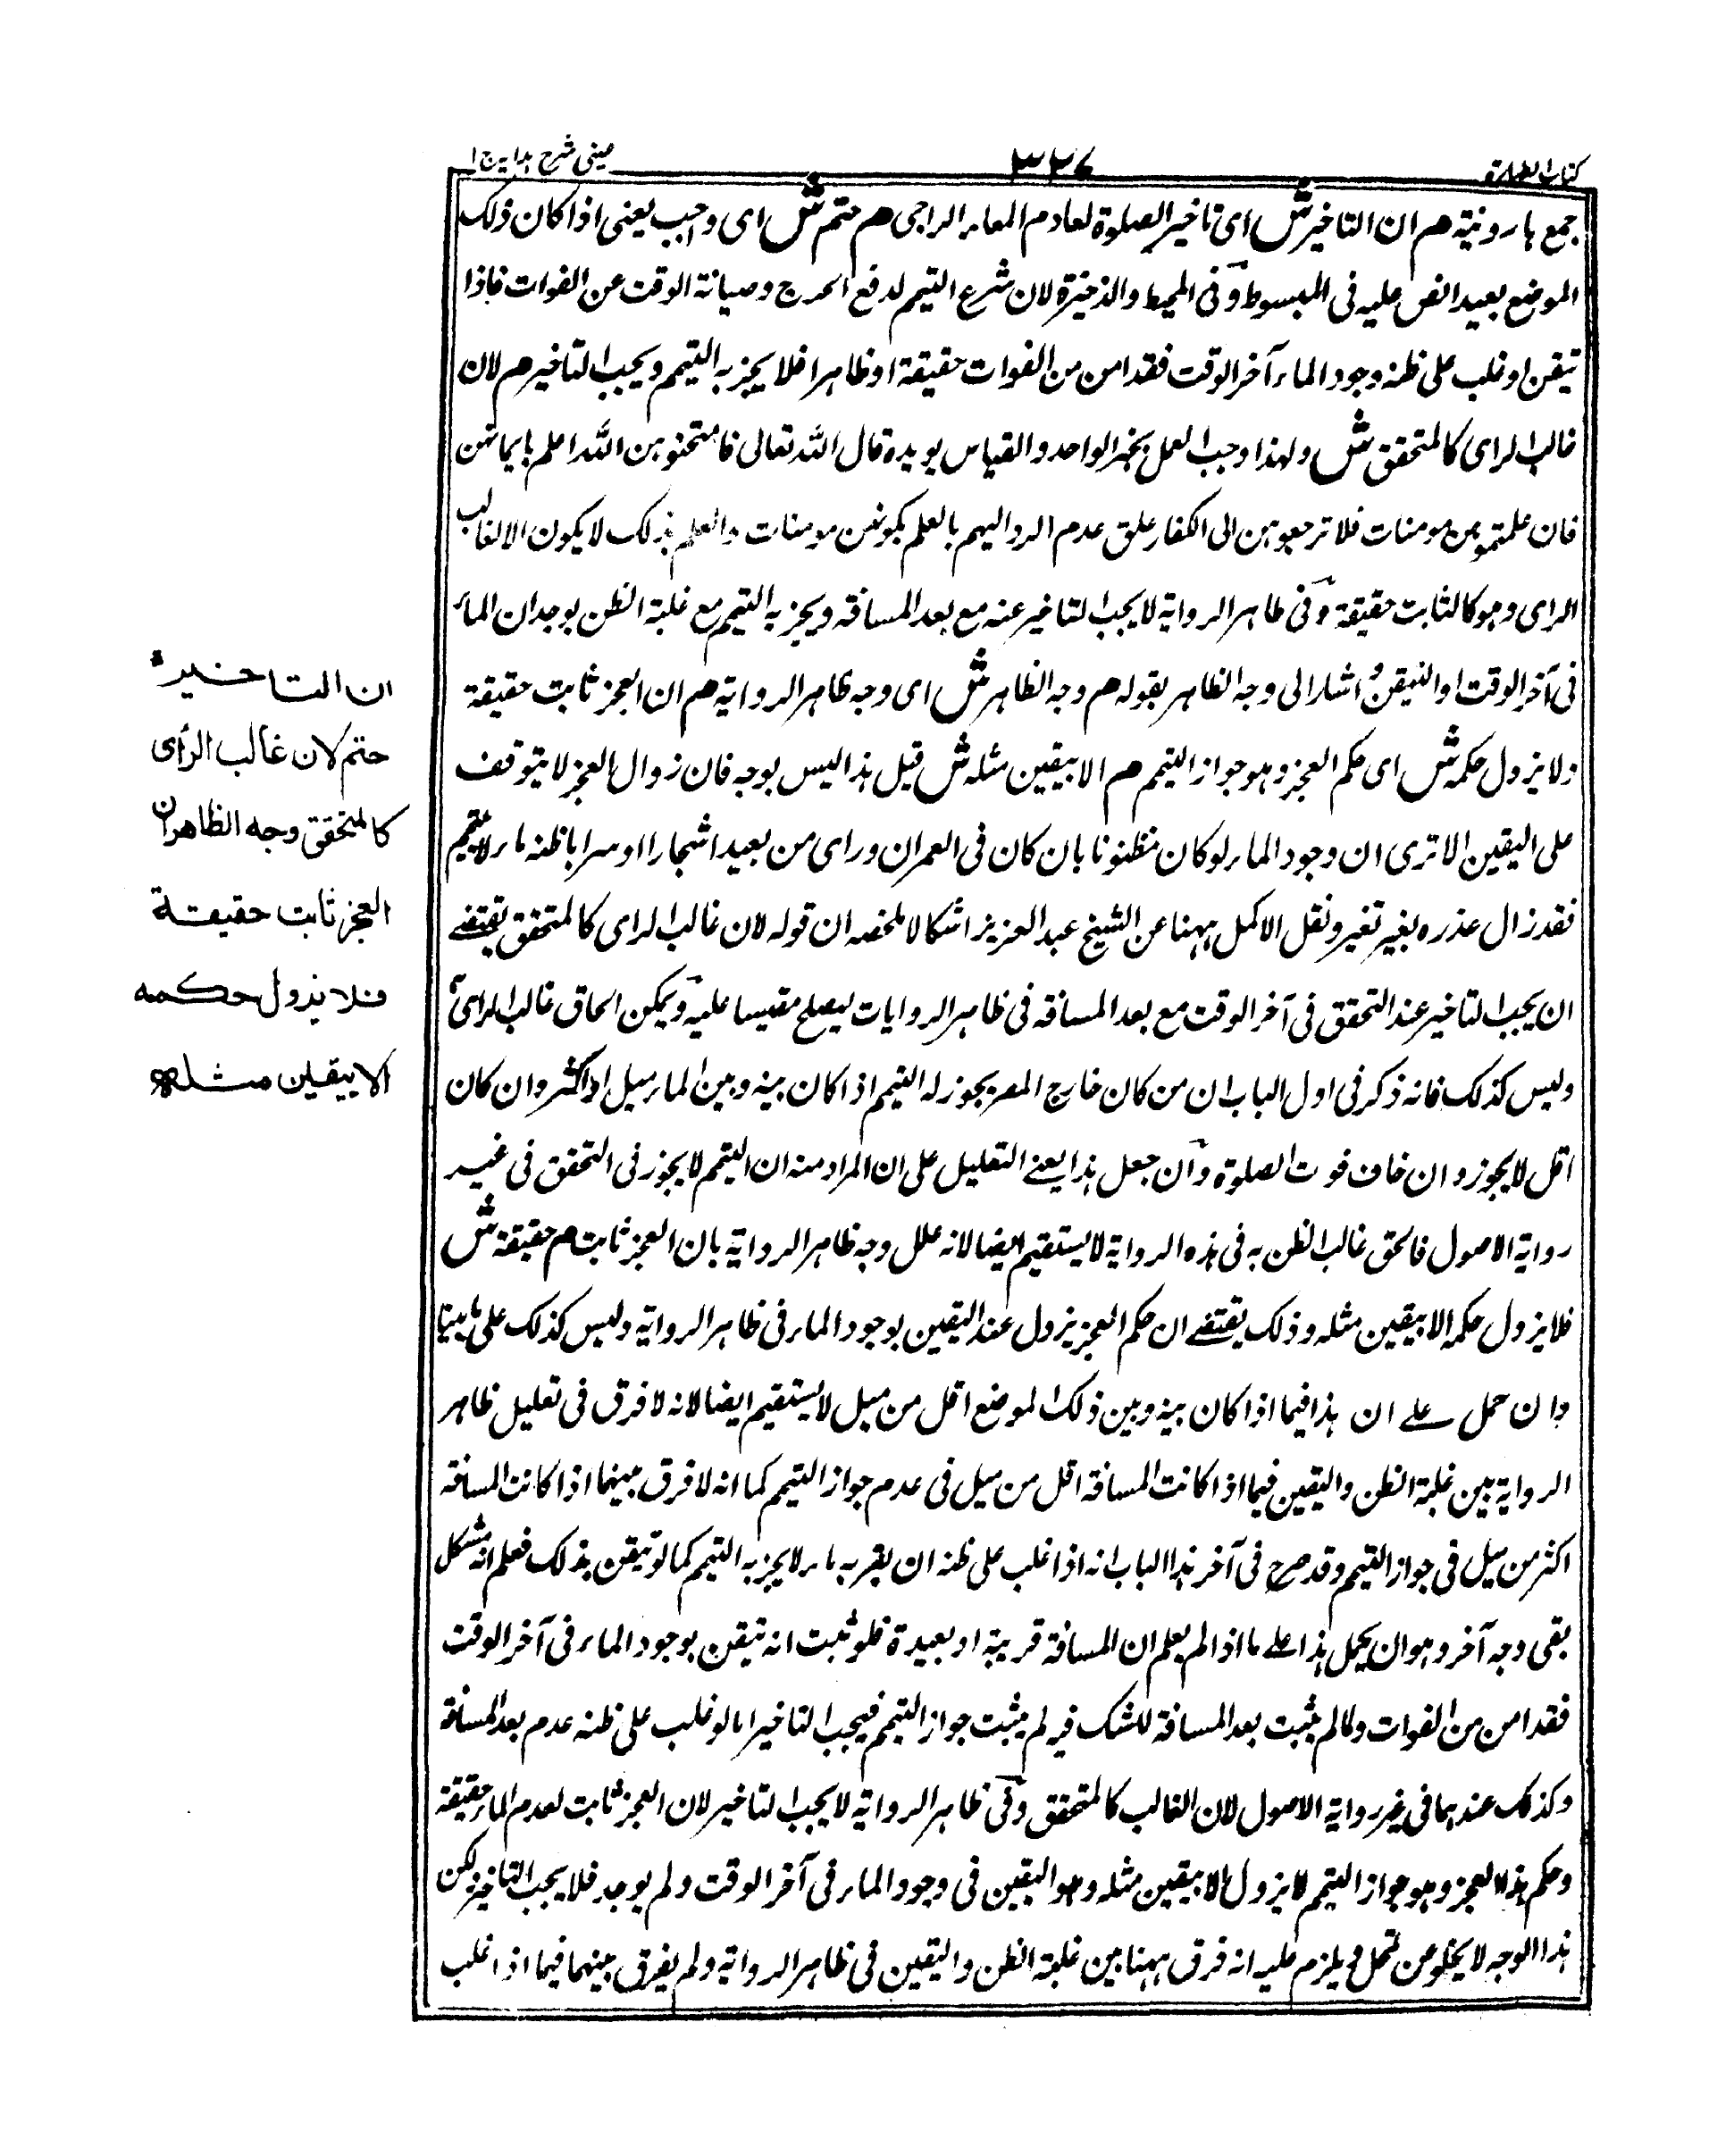 كتاب الطهارة
٣٢٧
عينى شرح هدايہ ج ١
جمع ہارونية هم ان التاخير ش اى تاخير الصلوة لعادم الماء الراجى هم حتم ش اى واجب يعنى اذا كان ذلك
الموضع بعيدا نص عليه فى المبسوط وفى المحيط والذخيرة لان شرع التيمم لدفع الحرج وصيانة الوقت عن الفوات فاذا
تيقن او غلب على ظنه وجود الماء آخر الوقت فقد امن من الفوات حقيقة او ظاهرا فلا يجزيه التيمم ويجب التاخير هم لان
غالب الراى كالمتحقق ش ولهذا وجب العمل بخبر الواحد والقياس يويده قال الله تعالى فامتحنوهن الله اعلم بايمانهن
فان علمتموهن مومنات فلا ترجعوهن الى الكفار علق عدم الرد اليهم بالعلم بكونهن مومنات والعلم بذلك لا يكون الا لغالب
الراى وهو كالثابت حقيقة وفى ظاهر الرواية لا يجب التاخير عنه مع بعد المسافة ويجزيه التيمم مع غلبة الظن بوجدان الماء
فى آخر الوقت او التيقن اشار الى وجه الظاهر بقوله هم وجه الظاهر ش اى وجه ظاهر الرواية هم ان العجز ثابت حقيقة
ولا يزول حكمه ش اى حكم العجز وهو جواز التيمم هم الا بيقين مثله ش قيل هذا ليس بوجه فان زوال العجز لا يتوقف
على اليقين الا ترى ان وجود الماء لو كان مظنونا بان كان فى العمران وراى من بعيد اشجارا او سرابا ظنه ماء لا يتيمم
فقد زال عذره بغير تغير ونقل الاكمل ههنا عن الشيخ عبد العزيز اشكالا ملخصه ان قوله لان غالب الراى كالمتحقق يقتضے
ان يجب التاخير عند التحقق فى آخر الوقت مع بعد المسافة فى ظاهر الروايات ليصلح مقيسا عليه ويمكن الحاق غالب الراى به
وليس كذلك فانه ذكر فى اول الباب ان من كان خارج المصر يجوز له التيمم اذا كان بينه وبين الماء ميل او اكثر وان كان
اقل لا يجوز وان خاف فوت الصلوة وان جعل هذا يعنے التعليل على ان المراد منه ان التيمم لا يجوز فى التحقق فى غير
رواية الاصول فالحق غالب الظن به فى هذه الرواية لا يستقيم ايضا لانه علل وجه ظاهر الرواية بان العجز ثابت هم حقيقة ش
فلا يزول حكمه الا بيقين مثله وذلك يقتضے ان حكم العجز يزول عند اليقين بوجود الماء فى ظاهر الرواية وليس كذلك على ما بينا
وان حمل علے ان هذا فيما اذا كان بينه وبين ذلك الموضع اقل من ميل لا يستقيم ايضا لانه لا فرق فى تعليل ظاهر
الرواية بين غلبة الظن واليقين فيما اذا كانت المسافة اقل من ميل فى عدم جواز التيمم كما انه لا فرق بينهما اذا كانت المسافة
اكثر من ميل فى جواز التيمم وقد صرح فى آخر هذا الباب انه اذا غلب على ظنه ان بقربه ماء لا يجزيه التيمم كما لو تيقن بذلك فعلم انه مشكل
بقى وجه آخر وهو ان يحمل هذا علے ما اذا لم يعلم ان المسافة قريبة او بعيدة فلو ثبت انه تيقن بوجود الماء فى آخر الوقت
فقد امن من الفوات ولما لم يثبت بعد المسافة للشك فيه لم يثبت جواز التيمم فيجب التاخير اما لو غلب على ظنه عدم بعد المسافة
وكذلك عندهما فى غير رواية الاصول لان الغالب كالمتحقق وفى ظاهر الرواية لا يجب التاخير لان العجز ثابت لعدم الماء حقيقة
وحكم هذا العجز وهو جواز التيمم لا يزول الا بيقين مثله وهو اليقين فى وجود الماء فى آخر الوقت ولم يوجد فلا يجب التاخير لكن
هذا الوجه لا يخلو من تمحل ويلزم عليه انه فرق ههنا بين غلبة الظن واليقين فى ظاهر الرواية ولم يفرق بينهما فيما اذا غلب
ان التاخير
حتم لان غالب الرأى
كالمتحقق وجه الظاهر ان
العجز ثابت حقيقة
فلا يزول حكمه
الا بيقين مثله